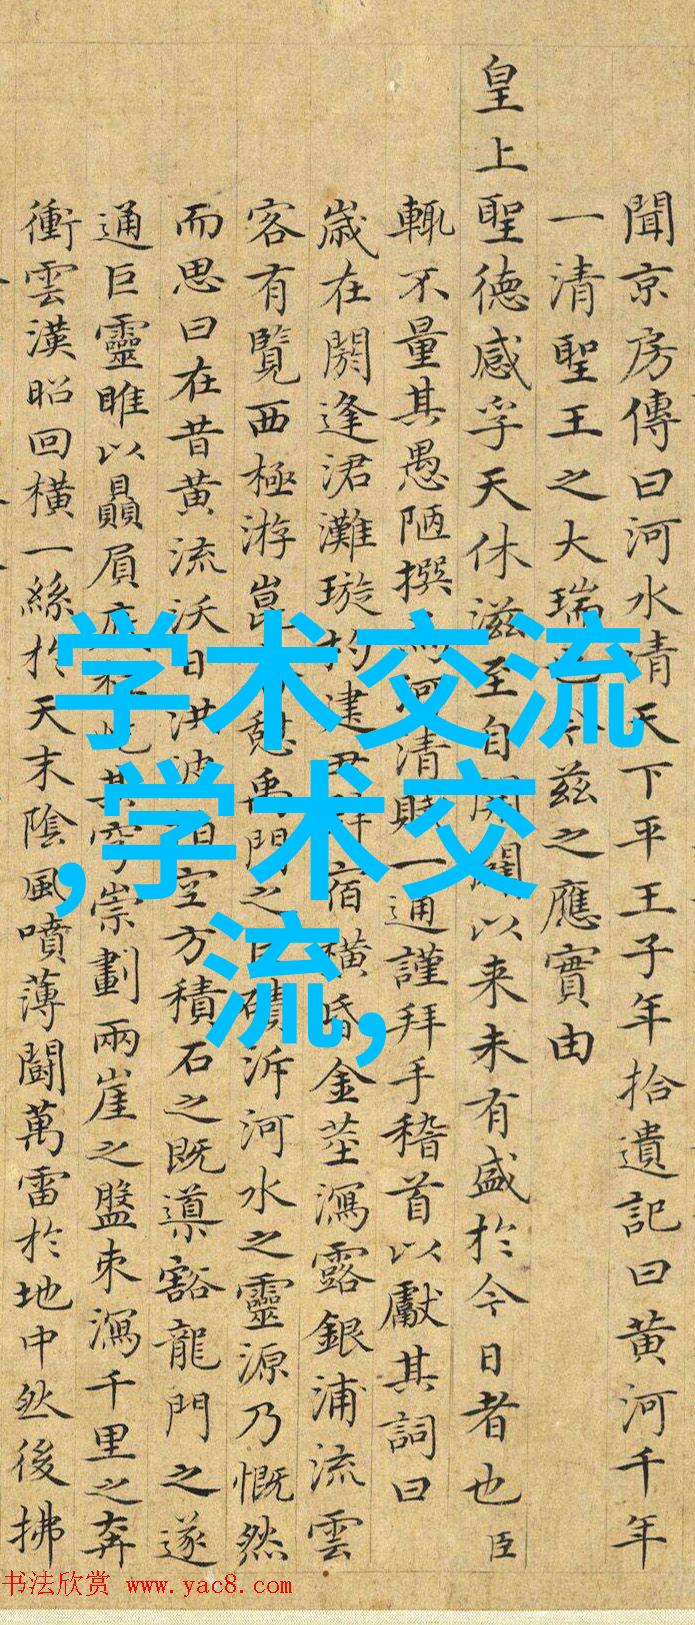 聞京房傳曰河水清天下平王子年拾遺記曰黄河千年
一清聖王之大瑞 今茲之應實由
皇上聖德感孚天休滋至自開闢以来未有盛於今日者也臣
輒不量其愚陋撰 河清賦一通謹拜手稽首以獻其詞曰
歲在閼逢涒灘璇 建 宿橫昏金莖瀉露銀浦流雲
客有覧西極游崑 憩禹門之 磧泝河水之靈源乃慨然
而思曰在昔黄流沃日洪波 空方積石之既導豁龍門之遂
通巨靈睢以贔屓 其穹崇劃兩崖之盤束瀉千里之奔
衝雲漢昭回橫一絲於天末陰風噴薄鬪萬雷於地中然後拂
学术交流
,学术交
流,
书法欣赏 www.yac8.com